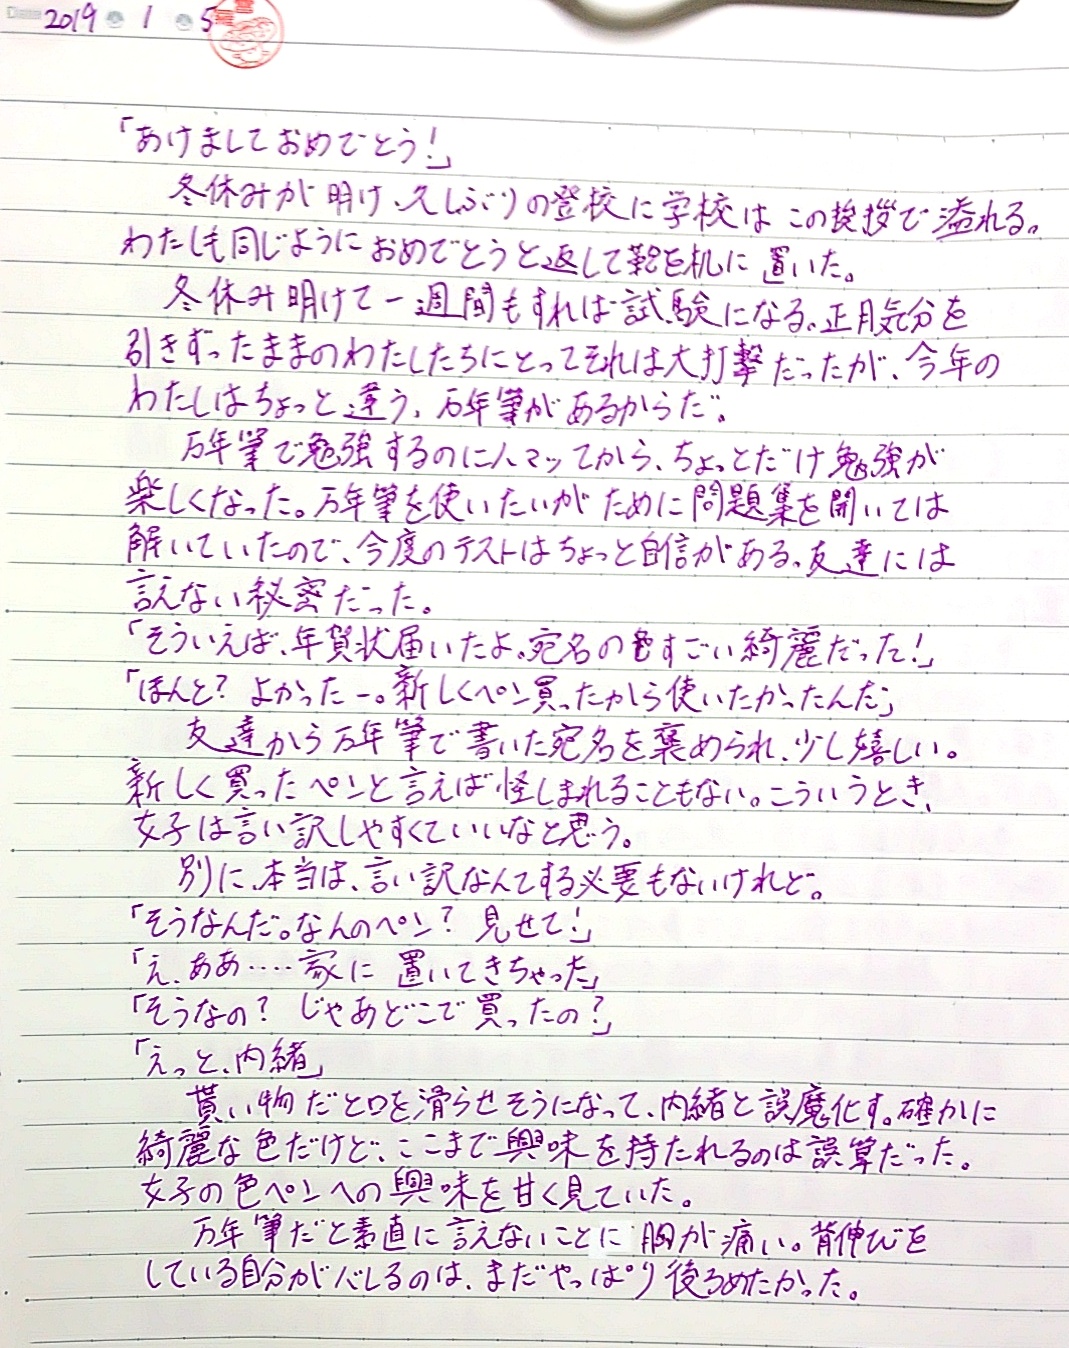 Date 2019 1 5
「あけましておめでとう！」
冬休みが明け、久しぶりの登校に学校はこの挨拶で溢れる。
わたしも同じようにおめでとうと返して鞄を机に置いた。
冬休み明けて一週間もすれば試験になる。正月気分を
引きずったままのわたしたちにとってそれは大打撃だったが、今年の
わたしはちょっと違う。万年筆があるからだ。
万年筆で勉強するのにハマッてから、ちょっとだけ勉強が
楽しくなった。万年筆を使いたいがために問題集を開いては
解いていたので、今度のテストはちょっと自信がある。友達には
言えない秘密だった。
「そういえば、年賀状届いたよ。宛名の色すごい綺麗だった！」
「ほんと？ よかったー。新しくペン買ったから使いたかったんだ」
友達から万年筆で書いた宛名を褒められ、少し嬉しい。
新しく買ったペンと言えば怪しまれることもない。こういうとき、
女子は言い訳しやすくていいなと思う。
別に、本当は、言い訳なんてする必要もないけれど。
「そうなんだ。なんのペン？ 見せて！」
「え、ああ‥‥家に置いてきちゃった」
「そうなの？ じゃあどこで買ったの？」
「えっと、内緒」
貰い物だと口を滑らせそうになって、内緒と誤魔化す。確かに
綺麗な色だけど、ここまで興味を持たれるのは誤算だった。
女子の色ペンへの興味を甘く見ていた。
万年筆だと素直に言えないことに胸が痛い。背伸びを
している自分がバレるのは、まだやっぱり後ろめたかった。